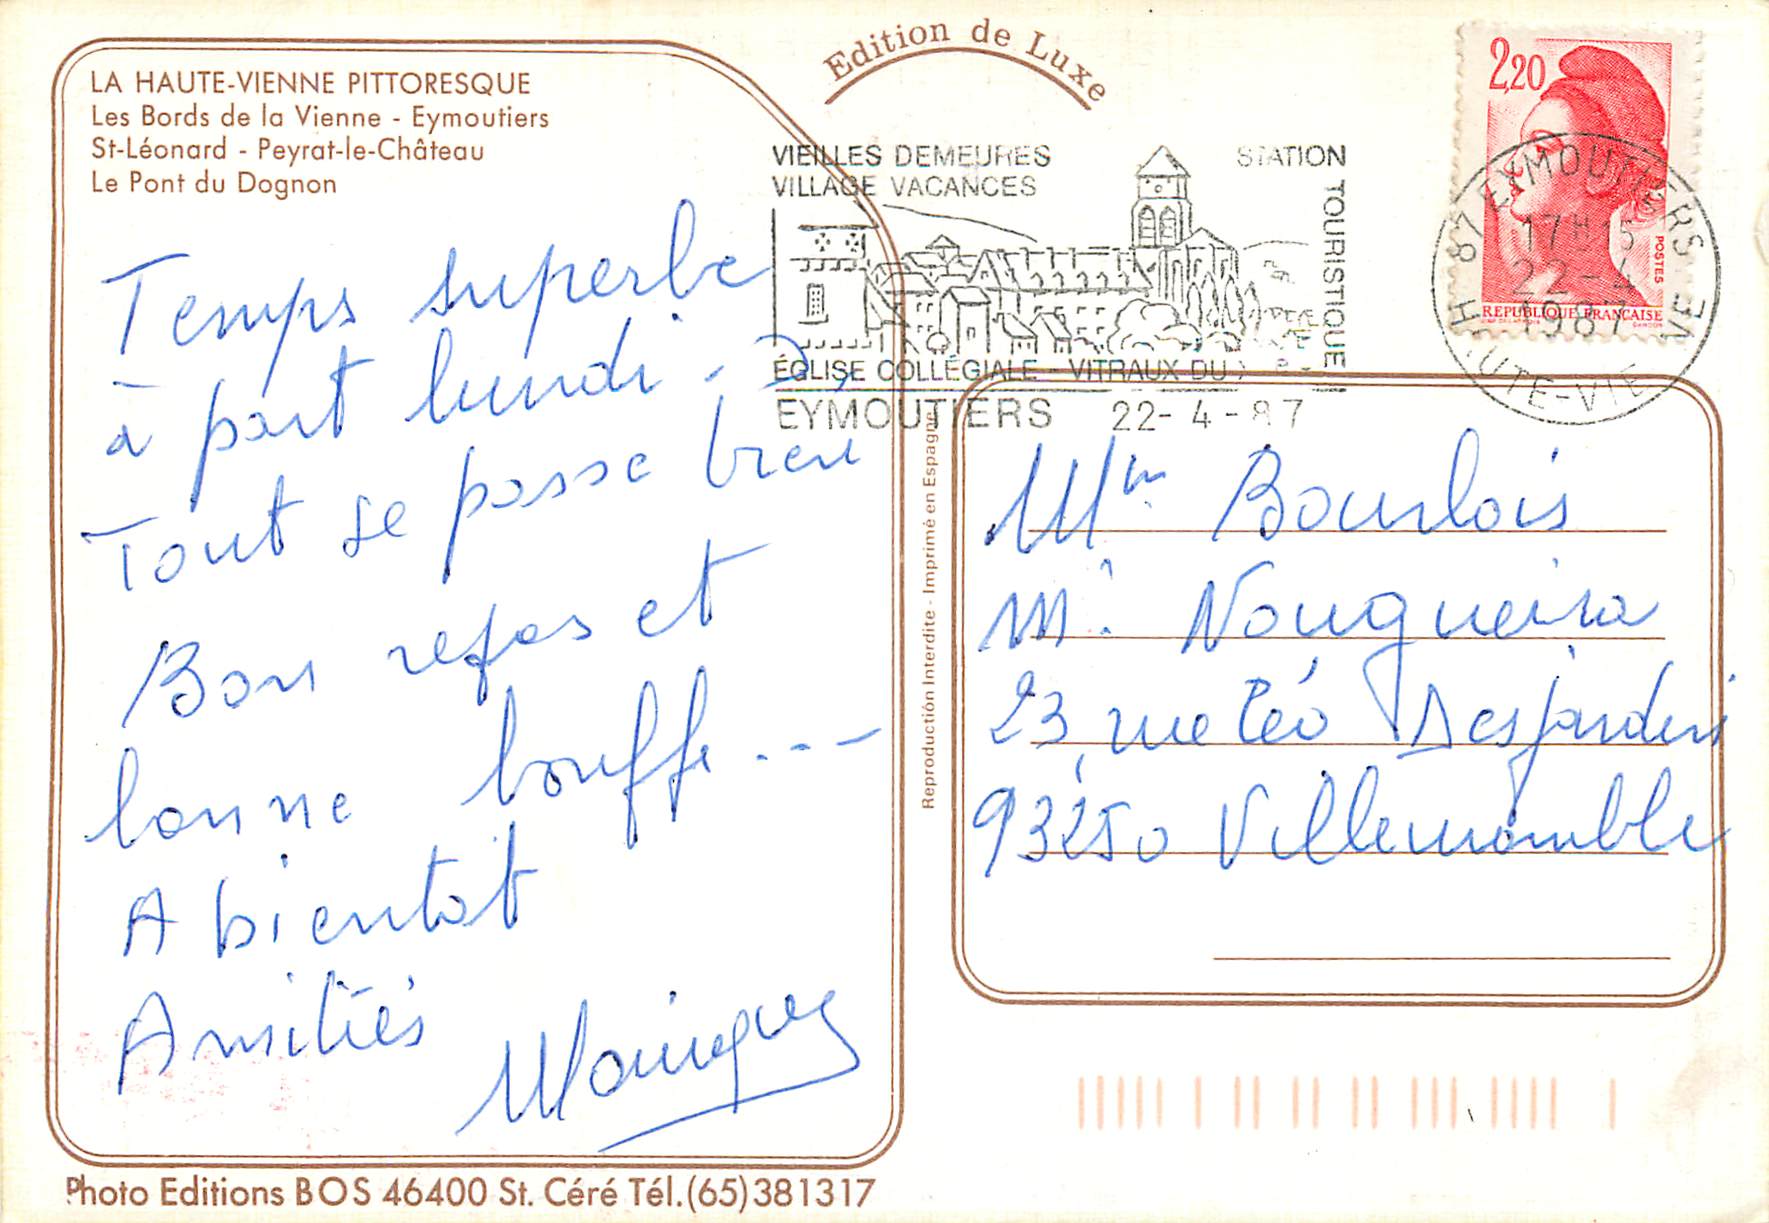 Edition de Luxe
LA HAUTE-VIENNE PITTORESQUE
Les Bords de la Vienne - Eymoutiers
St-Léonard - Peyrat-le-Château
Le Pont du Dognon
Temps superbe
à part lundi.
Tout se passe bien
Bon repas et
bonne bouffe...
A bientot
Amitiés
Photo Editions BOS 46400 St. Céré Tél.(65)381317
Reproduction Interdite - Imprimé en Espagne
VIEILLES DEMEURES
VILLAGE VACANCES
STATION
TOURISTIQUE
ÉGLISE COLLÉGIALE - VITRAUX DU
EYMOUTIERS 22-4-87
2,20
POSTES
REPUBLIQUE FRANÇAISE
87 EYMOUTIERS
17H15
22-4
1987
HAUTE-VIENNE
Mme Bourlois
Mr Nougueira
23, rue Léo Desjardins
93250 Villemomble